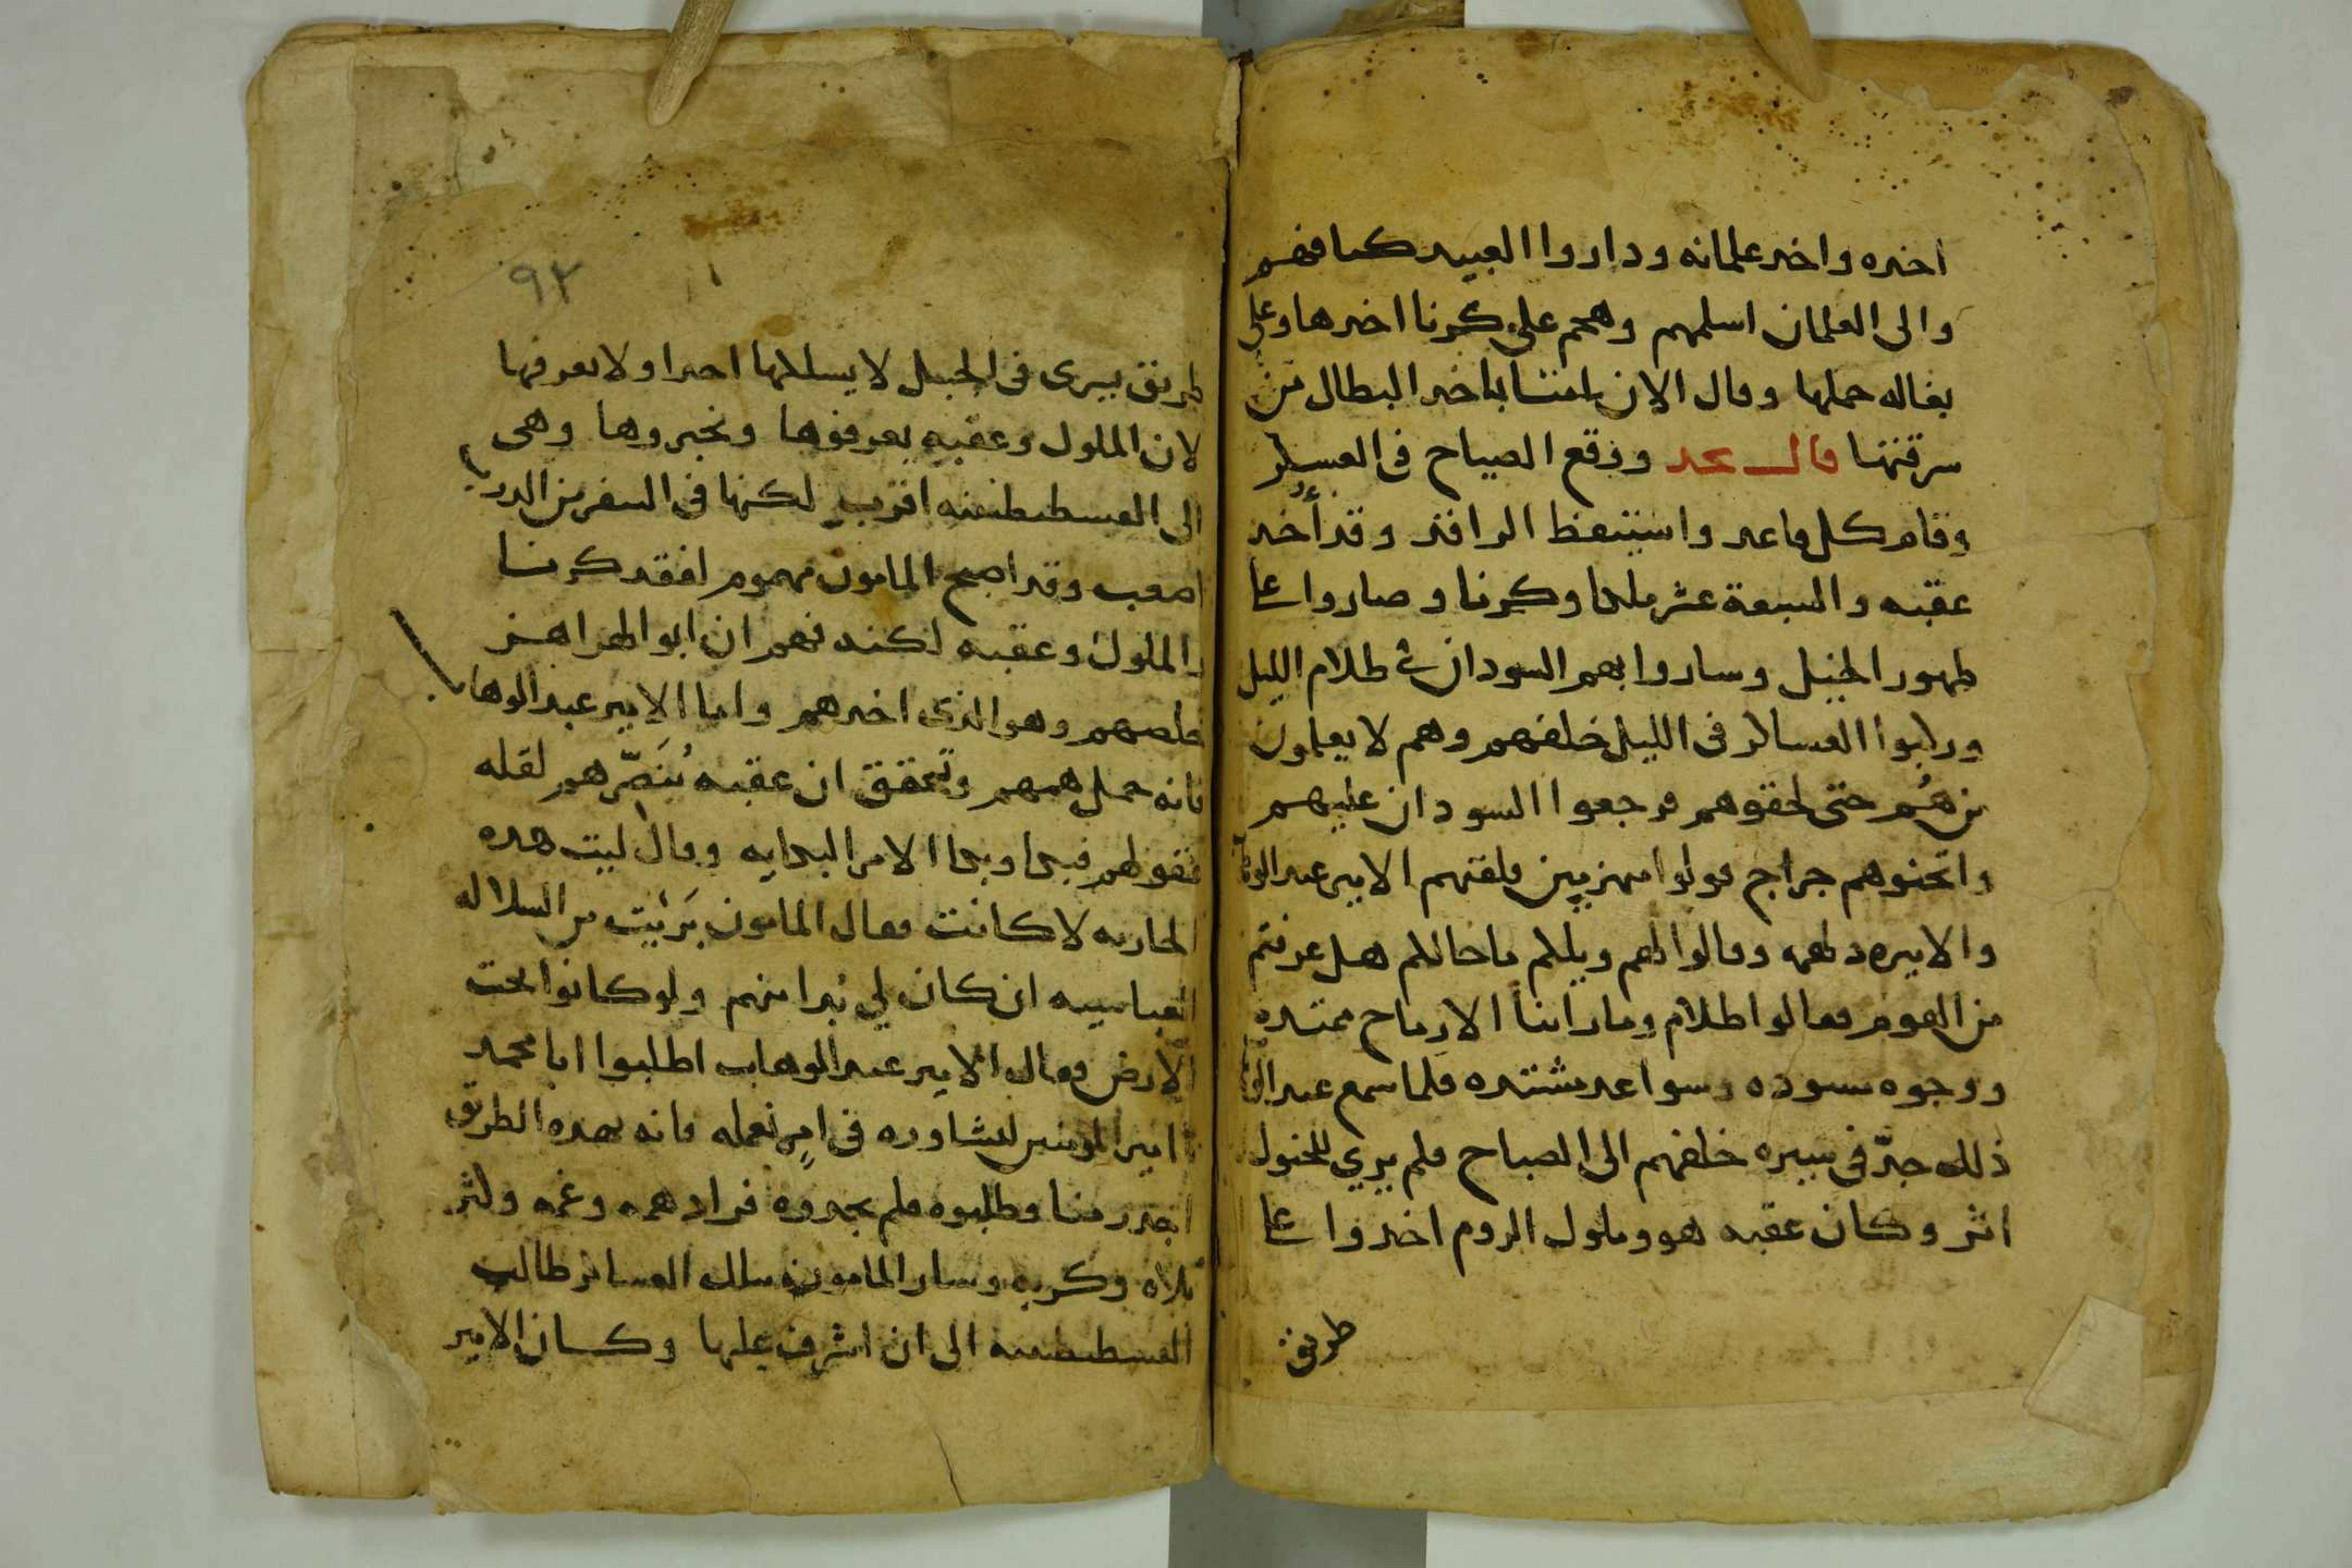 اخذه واخد علمانه وداروا العبيد كتافهم
والى الغلمان اسلمهم وهجم على كرنا اخدها وعلى
بغاله حملها وقال الان يامنشا باخد البطال من
سرقتها قال نجد ووقع الصياح في العسكر
وقام كل قاعد واستيقظ الراقد وقد أُخد
عقبه والسبعة عشر ملكا وكرنا وصاروا على
ظهور الخيل وساروا بهم السودان في ظلام الليل
وركبوا العساكر في الليل خلفهم وهم لا يعلمون
من هُم حتى لحقوهم فرجعوا السودان عليهم
واثخنوهم جراح فولوا منهزمين فلقتهم الامير عبد الوهاب
والاميره دلهمه وقالوا لهم ويلكم ما حالكم هل عرفتم
من القوم فقالوا ظلام وما راينا الا رماح ممتده
ووجوه مسوده وسواعد مشتده فلما سمع عبد الوهاب
ذلك جدّ في سيره خلفهم الى الصباح فلم يري للخيول
اثر وكان عقبه هو وملوك الروم اخدوا على
طريق
٩٢
طريق يسرى في الجبل لا يسلكها احدا ولا يعرفها
لان الملوك وعقبه يعرفوها ويخبروها وهي
الى القسطنطينيه اقرب لكنها في السفر من الدروب
اصعب وقد اصبح المامون مهموم لفقد كرنا
والملوك وعقبه لكنه فهم ان ابو الهزاهز
خلصهم وهو الذي اخدهم واما الامير عبد الوهاب
فانه حمل همهم وتحقق ان عقبه يُنَصّرهم لقله
فيجا ويجا الامر البدايه وقال ليت هده
الجاريه لا كانت فقال المامون بَرئيت من السلاله
العباسيه ان كان لي بُدا منهم ولو كانوا تحت
الارض فقال الامير عبد الوهاب اطلبوا ابا محمد
يا امير المومنين لنشاوره في امرٍ نعمله فانه بهده الطريق
اخبر منا وطلبوه فلم يجدوه فزاد همه وغمه وكثر
بلاه وكربه وسار المامون بتلك العساكر طالب
القسطنطينيه الى ان اشرف عليها وكان الامير